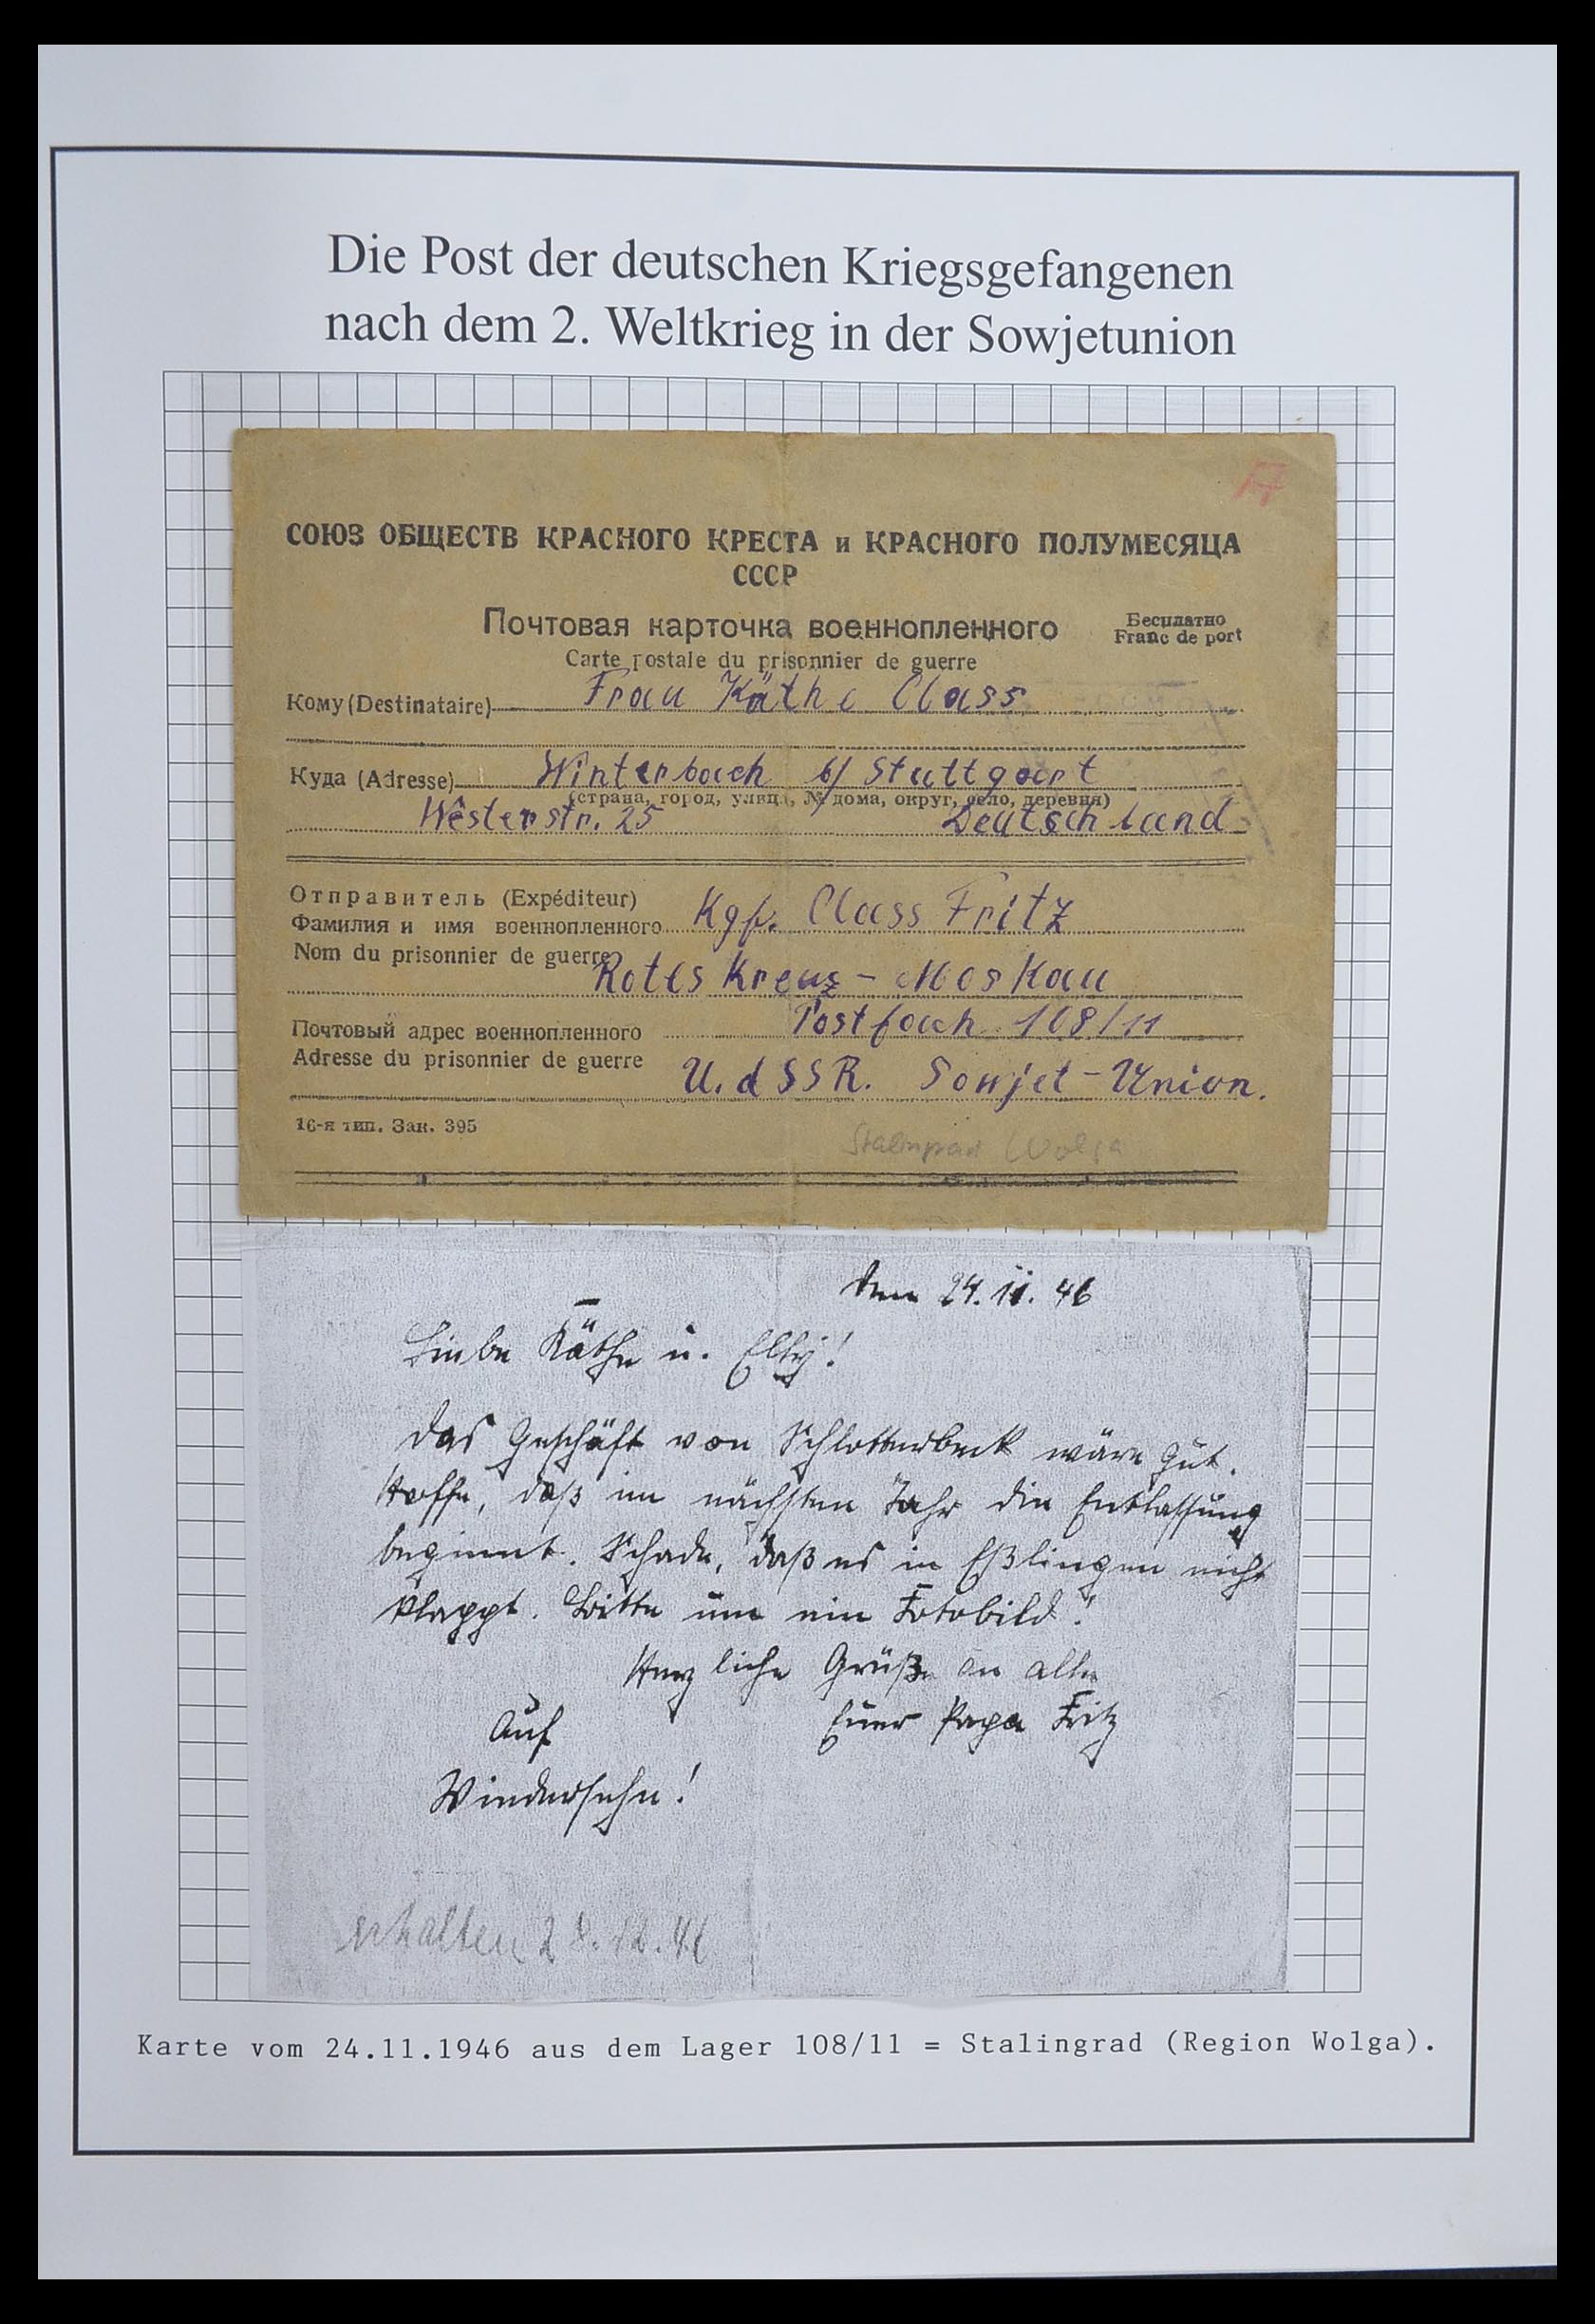 Die Post der deutschen Kriegsgefangenen
nach dem 2. Weltkrieg in der Sowjetunion
СОЮЗ ОБЩЕСТВ КРАСНОГО КРЕСТА и КРАСНОГО ПОЛУМЕСЯЦА
СССР
Почтовая карточка военнопленного
Бесплатно
Franc de port
Carte postale du prisonnier de guerre
Кому (Destinataire) Frau Käthe Class
Куда (Adresse) Winterbach b/ Stuttgart
(страна, город, улица, № дома, округ, село, деревня)
Westerstr. 25 Deutschland
Отправитель (Expéditeur)
Фамилия и имя военнопленного Kgf. Class Fritz
Nom du prisonnier de guerre
Rotes Kreuz - Moskau
Почтовый адрес военнопленного Postfach 108/11
Adresse du prisonnier de guerre U.d SSR. Sowjet-Union.
16-я тип. Зак. 395
Stalingrad Wolga
den 24.11.46
Liebe Käthe u. Elly!
Das Geschäft von Schlotterbeck wäre gut.
Hoffe, daß im nächsten Jahr die Entlassung
beginnt. Schade, daß es in Eßlingen nicht
klappt. Bitte um ein Fotobild.
Herzliche Grüße an alle
Euer Papa Fritz
Auf
Wiedersehn!
erhalten 28.12.46
Karte vom 24.11.1946 aus dem Lager 108/11 = Stalingrad (Region Wolga).